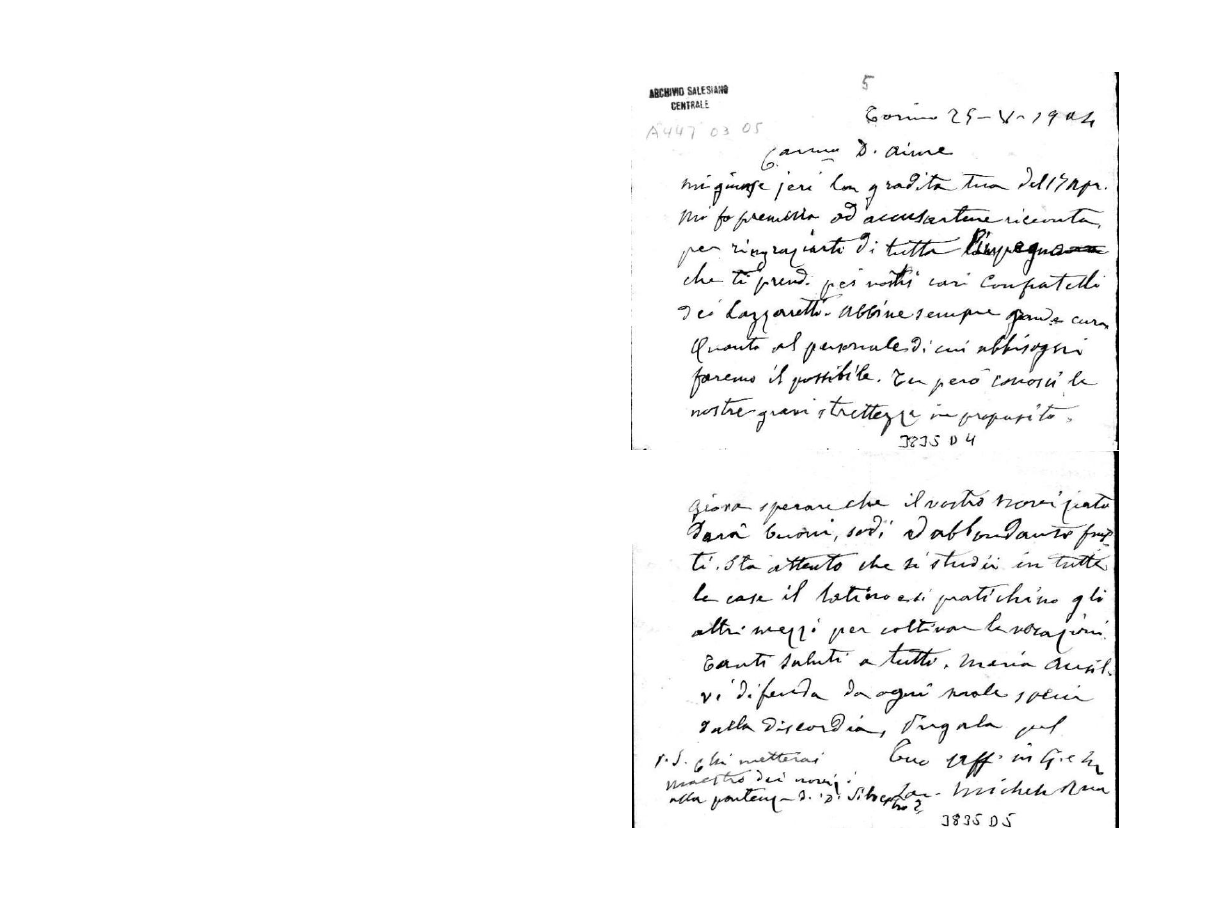 5
ARCHIVIO SALESIANO
CENTRALE
A447 03 05
Torino 25-V-1904
C.armo D. Aime
mi giunse jeri la gradita tua del 17 Apr.
Mi fo premura ad accusartene ricevuta,
per ringraziarti di tutto l'impegno
che ti prend. pei nostri cari Confratelli
dei Lazzaretti. Abbine sempre grande cura
Quanto al personale di cui abbisogni
faremo il possibile. Tu però conosci le
nostre gravi strettezze in proposito.
3835 D 4
Giova sperare che il vostro noviziato
darà buoni, sodi ed abbondanti frut-
ti. Sta attento che si studii in tutte
le case il latino e si pratichino gli
altri mezzi per coltivar le vocazioni.
Tanti saluti a tutti. Maria Ausil.
vi difenda da ogni male specia
dalla discordia, Prega pel
Tuo aff. in G. e M.
Sac. Michele Rua
P.S. Chi metterai
maestro dei novizi
alla partenza di D. Silvestro?
3835 D5